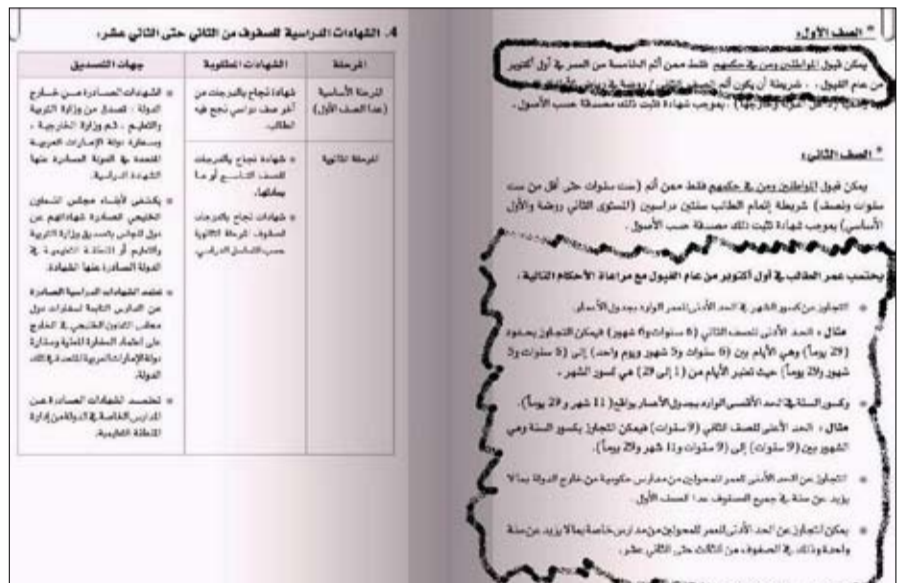 * الصف الأول:
يمكن قبول المواطنين ومن في حكمهم فقط ممن أتم الخامسة من العمر في أول أكتوبر
من عام القبول، شريطة أن يكون أتم الصف الثاني / روضة في رياض الأطفال
حسب الأصول.
* الصف الثاني:
يمكن قبول المواطنين ومن في حكمهم فقط ممن أتم (ست سنوات حتى أقل من ست
سنوات ونصف) شريطة إتمام الطالب سنتين دراسيين (المستوى الثاني روضة والأول
الأساسي) بموجب شهادة تثبت ذلك مصدقة حسب الأصول.
يحتسب عمر الطالب في أول أكتوبر من عام القبول مع مراعاة الأحكام التالية:
التجاوز عن كسور الشهر في الحد الأدنى للعمر الوارد بجدول الأعمار.
مثال: الحد الأدنى للصف الثاني (6 سنوات و6 شهور) فيمكن التجاوز بحدود
(29 يوماً) وهي الأيام بين (6 سنوات و5 شهور ويوم واحد) إلى (6 سنوات و5
شهور و29 يوماً) حيث تعتبر الأيام من (1 إلى 29) هي كسور الشهر.
وكسور السنة في الحد الأقصى الوارد بجدول الأعمار بواقع (11 شهر و 29 يوماً).
مثال: الحد الأعلى للصف الثاني (9 سنوات) فيمكن التجاوز بكسور السنة وهي
الشهور بين (9 سنوات) إلى (9 سنوات و11 شهر و29 يوماً).
التجاوز عن الحد الأدنى للعمر للمحولين من مدارس حكومية من خارج الدولة بما لا
يزيد عن سنة في جميع الصفوف عدا الصف الأول.
يمكن التجاوز عن الحد الأدنى للعمر للمحولين من مدارس خاصة بما لا يزيد عن سنة
واحدة وذلك في الصفوف من الثالث حتى الثاني عشر.
4. الشهادات الدراسية للصفوف من الثاني حتى الثاني عشر:
المرحلة الشهادات المطلوبة جهات التصديق
المرحلة الأساسية
(عدا الصف الأول)
شهادة نجاح بالدرجات من
آخر صف دراسي نجح فيه
الطالب.
المرحلة الثانوية
شهادة نجاح بالدرجات
للصف التاسع أو ما
يعادلها.
شهادات نجاح بالدرجات
لصفوف المرحلة الثانوية
حسب التسلسل الدراسي.
الشهادات الصادرة من خارج
الدولة: تصدق من وزارة التربية
والتعليم، ثم وزارة الخارجية،
وسفارة دولة الإمارات العربية
المتحدة في الدولة الصادرة عنها
الشهادة الدراسية.
يكتفى لأبناء مجلس التعاون
الخليجي الصادرة شهاداتهم عن
دول المجلس بتصديق وزارة التربية
والتعليم أو المنطقة التعليمية في
الدولة الصادرة عنها الشهادة.
تعتمد الشهادات الدراسية الصادرة
عن المدارس التابعة لسفارات دول
مجلس التعاون الخليجي في الخارج
على اعتماد السفارة المعنية وسفارة
دولة الإمارات العربية المتحدة في تلك
الدولة.
تعتمد الشهادات الصادرة عن
المدارس الخاصة في الدولة من إدارة
المنطقة التعليمية.